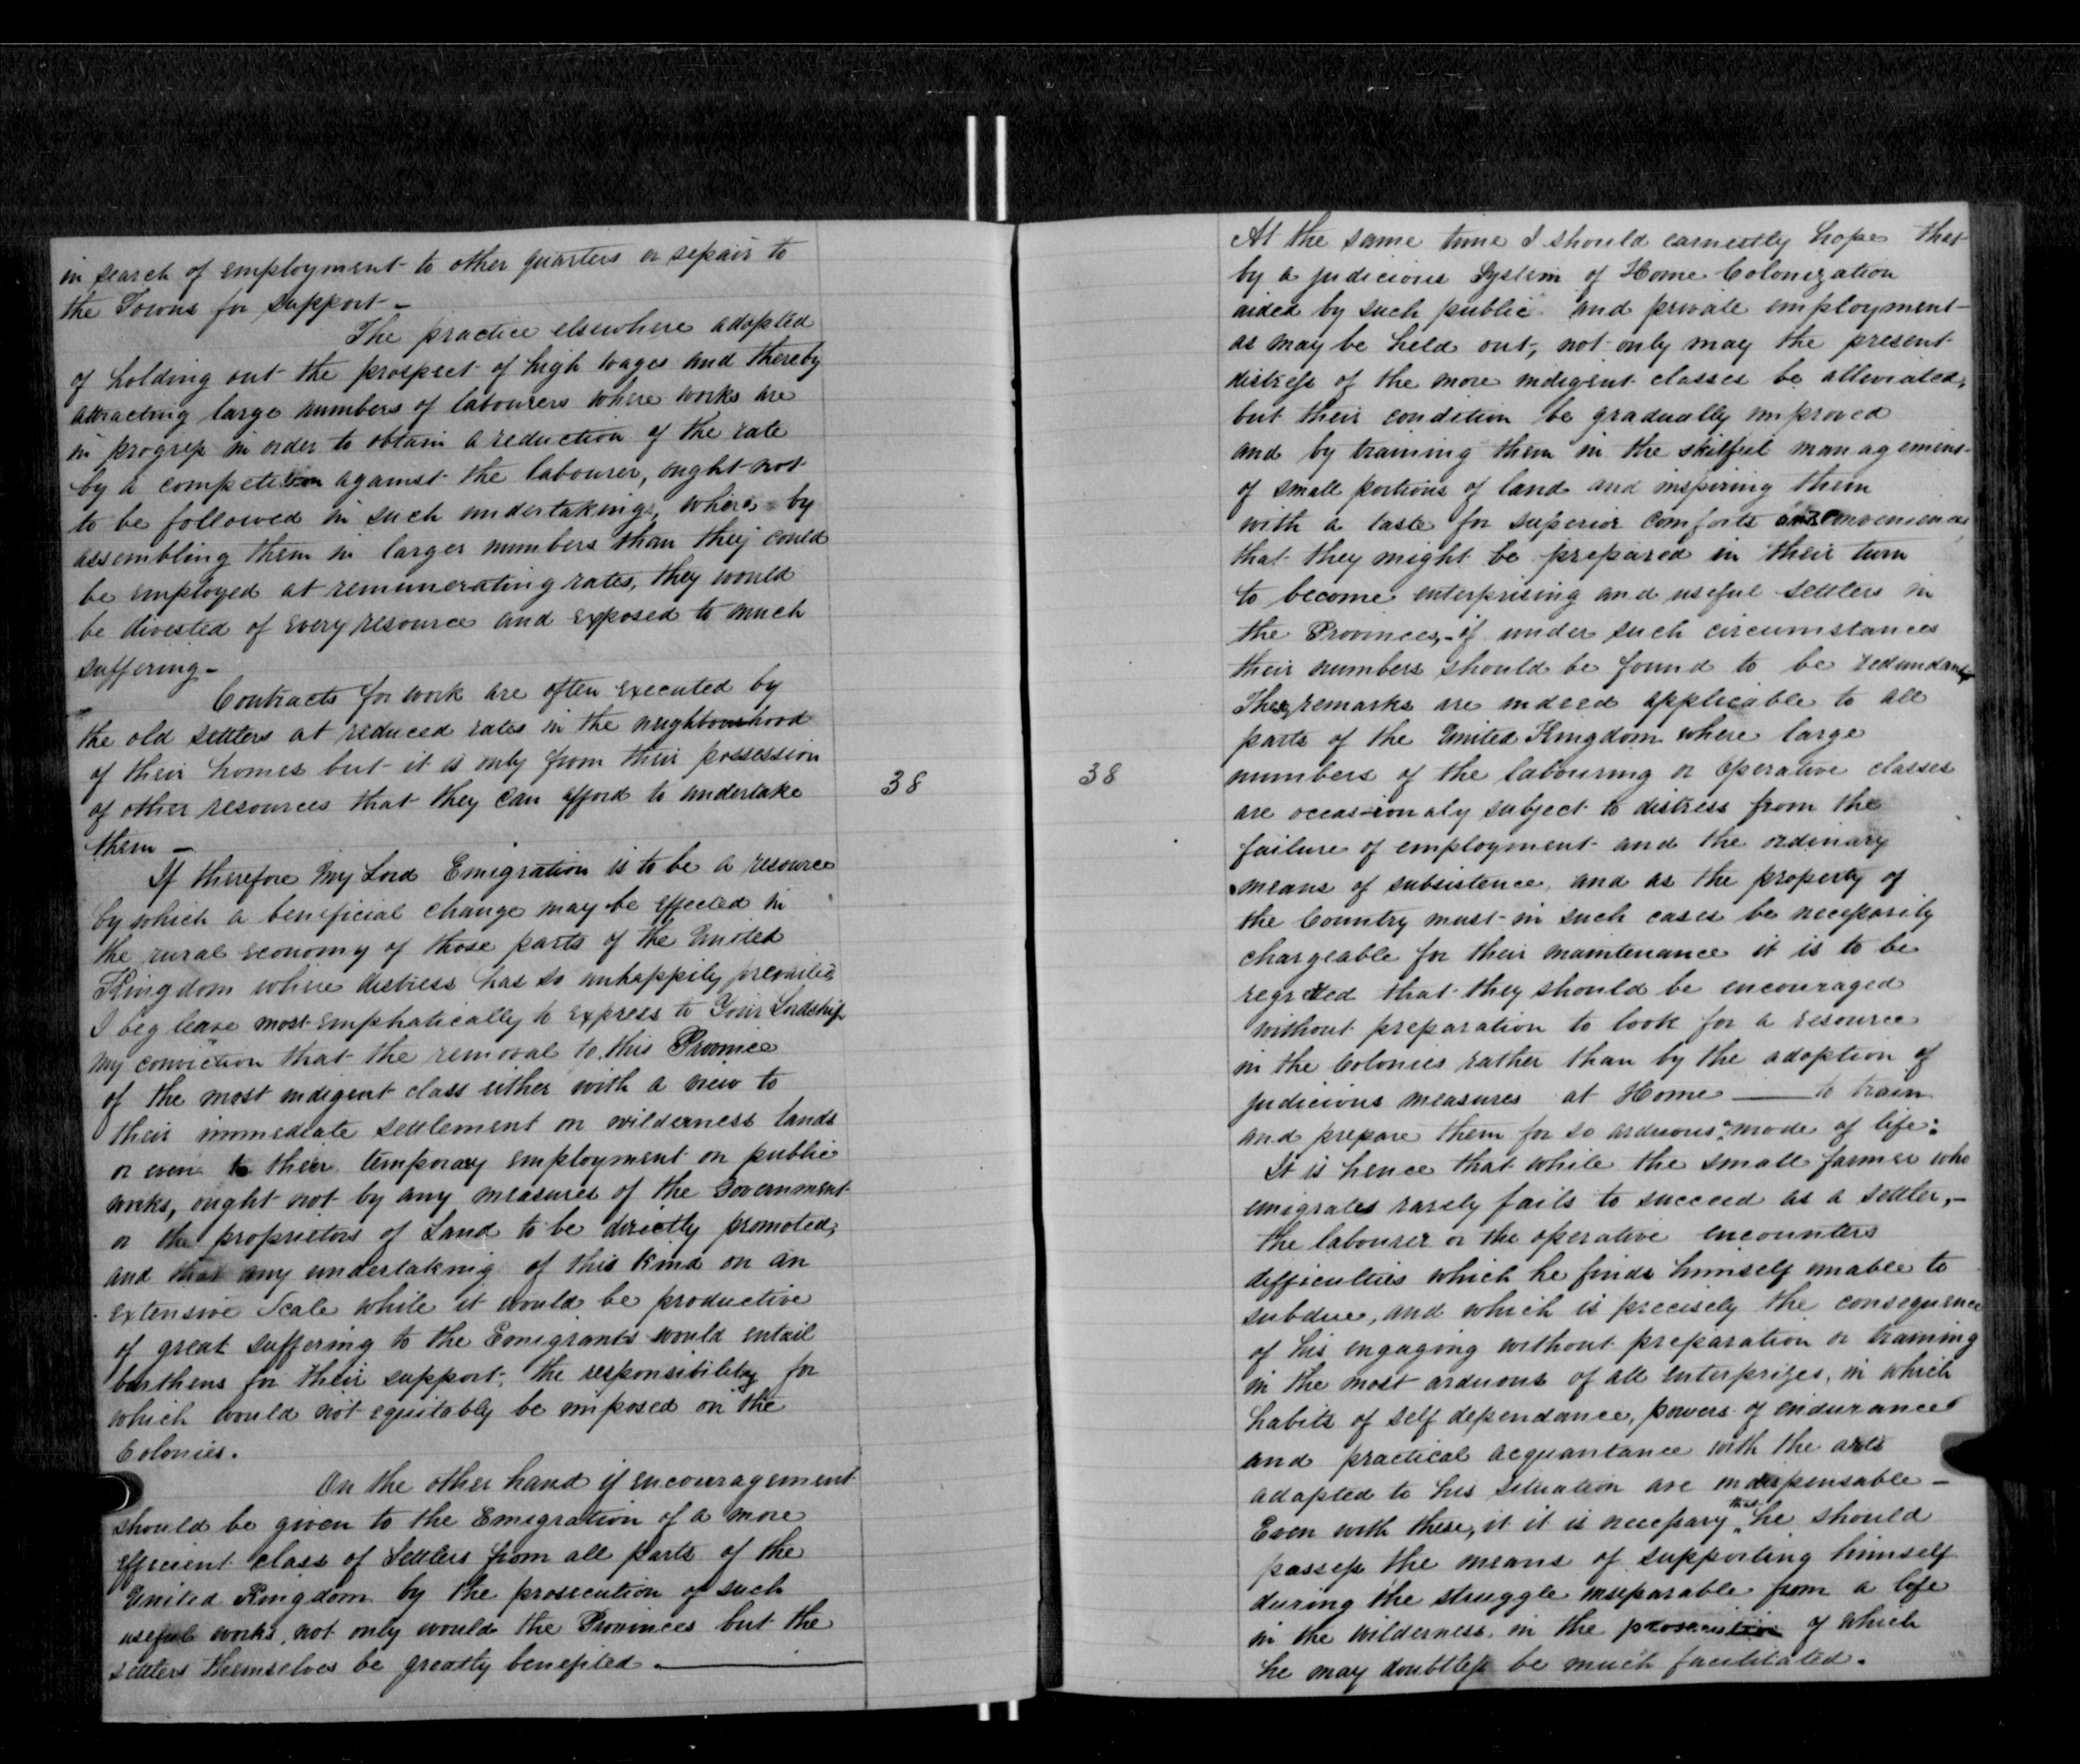 in search of employment to other quarters or repair to
the Towns for support -
The practice elsewhere adopted
of holding out the prospect of high wages and thereby
attracting large numbers of labourers where works are
in progress in order to obtain a reduction of the rate
by a competition against the labourer, ought not
to be followed in such undertakings, where by
assembling them in larger numbers than they could
be employed at remunerating rates, they would
be divested of every resource and exposed to much
suffering -
Contracts for work are often executed by
the old settlers at reduced rates in the neighbourhood
of their homes but it is only from their possession
of other resources that they can afford to undertake
them -
If therefore My Lord Emigration is to be a resource
by which a beneficial change may be effected in
the rural economy of those parts of the United
Kingdom where distress has so unhappily prevailed
I beg leave most emphatically to express to Your Lordship
my conviction that the removal to this Province
of the most indigent class either with a view to
their immediate settlement on wilderness lands
or even to their temporary employment on public
works, ought not by any measures of the Government
or the proprietors of Land to be directly promoted,
and that any undertaking of this kind on an
extensive Scale while it would be productive
of great suffering to the Emigrants would entail
burthens for their support, the responsibility for
which would not equitably be imposed on the
Colonies.
On the other hand if encouragement
should be given to the Emigration of a more
efficient class of Settlers from all parts of the
United Kingdom by the prosecution of such
useful works, not only would the Provinces but the
settlers themselves be greatly benefited.
38
38
At the same time I should earnestly hope that
by a judicious System of Home Colonization
aided by such public and private employment
as may be held out, not only may the present
distress of the more indigent classes be alleviated,
but their condition be gradually improved
and by training them in the skilful management
of small portions of land and inspiring them
with a taste for superior comforts and conveniences
that they might be prepared in their turn
to become enterprising and useful settlers in
the Provinces, - if under such circumstances
their numbers should be found to be redundant
These remarks are indeed applicable to all
parts of the United Kingdom where large
numbers of the labouring or operative classes
are occasionaly subject to distress from the
failure of employment and the ordinary
means of subsistence, and as the property of
the Country must in such cases be necessarily
chargeable for their maintenance it is to be
regretted that they should be encouraged
without preparation to look for a resource
in the Colonies rather than by the adoption of
judicious measures at Home —— to train
and prepare them for so arduous a mode of life:
It is hence that while the small farmer who
emigrates rarely fails to succeed as a settler, -
the labourer or the operative encounters
difficulties which he finds himself unable to
subdue, and which is precisely the consequence
of his engaging without preparation or training
in the most arduous of all enterprizes, in which
habits of self dependance, powers of endurance
and practical acquantance with the arts
adapted to his situation are indispensable -
Even with these, it it is necessary that he should
possess the means of supporting himself
during the struggle inseparable from a life
in the wilderness, in the prosecution of which
he may doubtless be much facilitated.